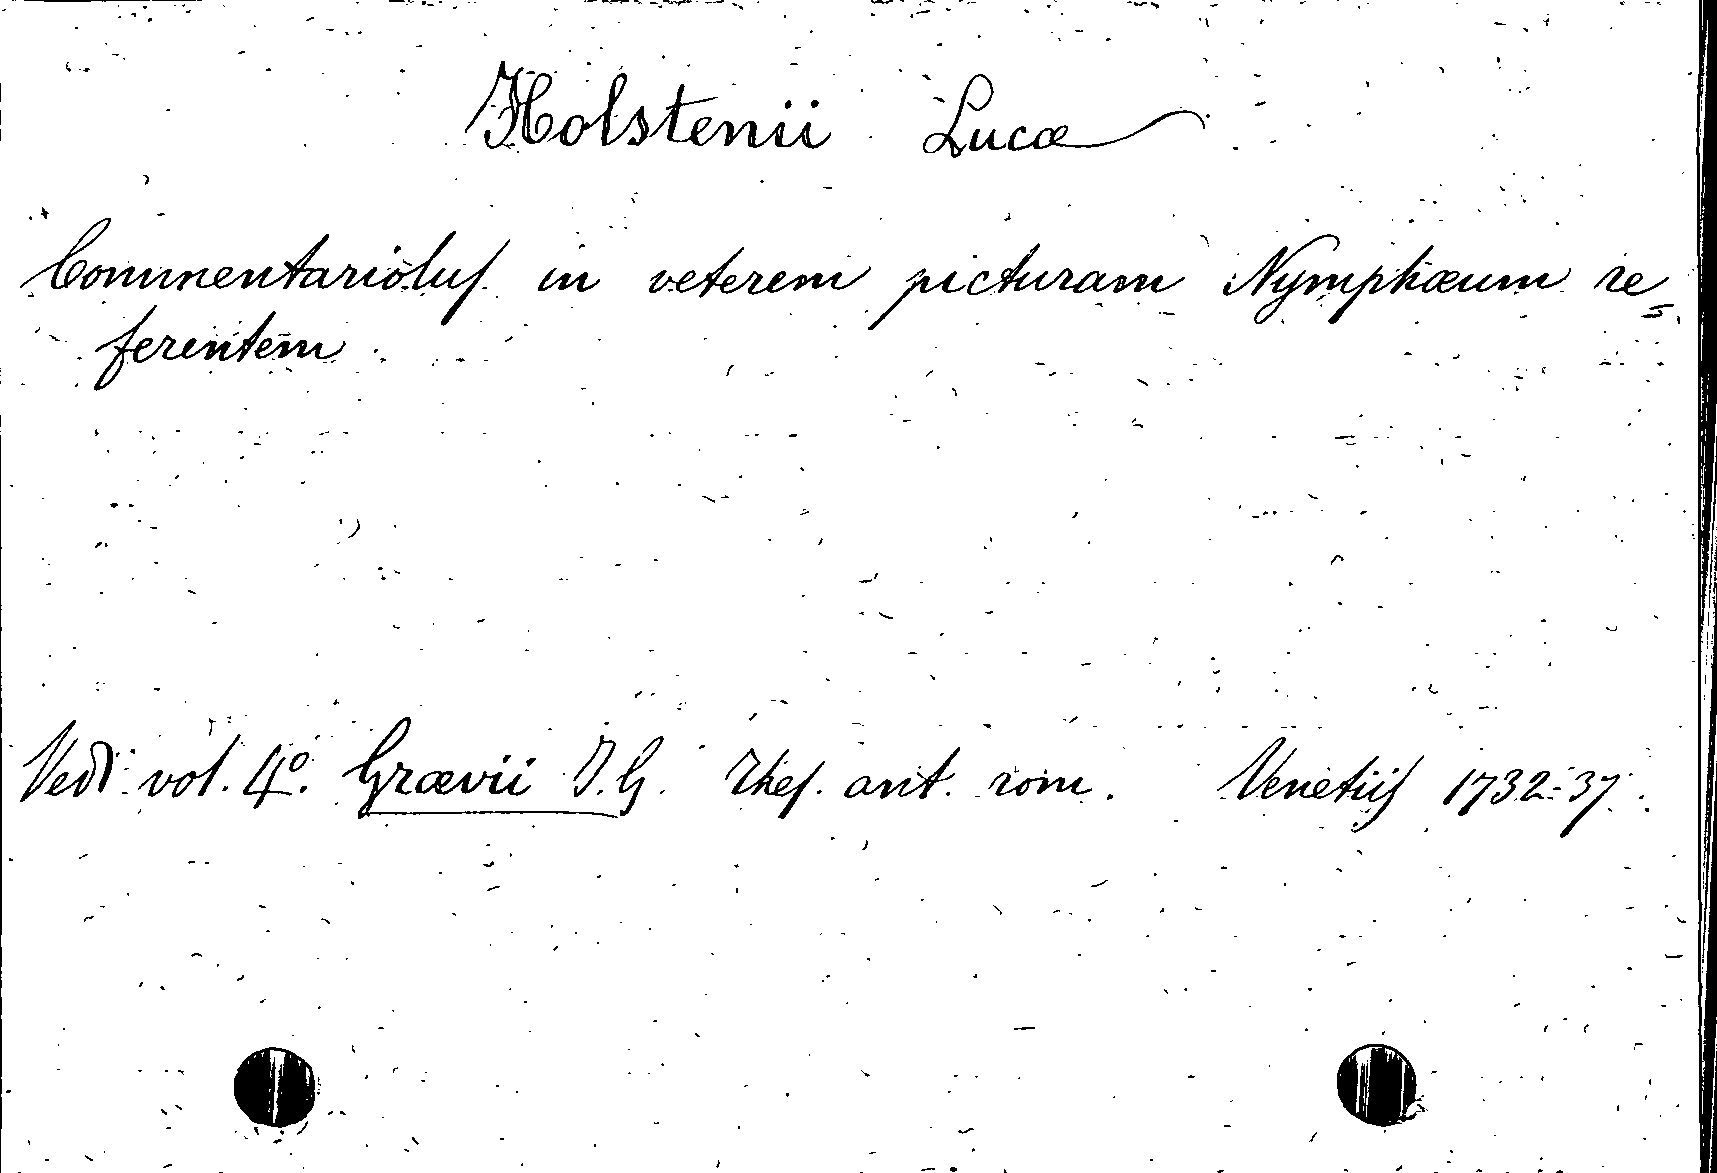 Holstenii Lucæ
Commentariolus in veterem picturam Nymphæum re=
ferentem
Vedi vol. 4º. Grævii J. G. Thes. ant. rom. Venetiis 1732-37.